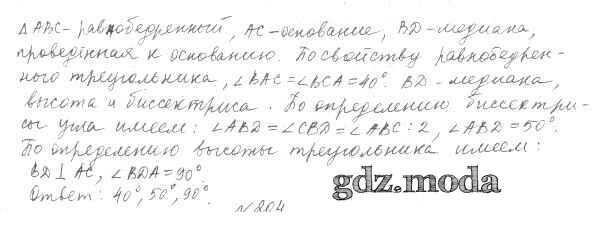 △ABC-равнобедренный, AC-основание, BD-медиана,
проведённая к основанию. По свойству равнобедрен-
ного треугольника, ∠BAC=∠BCA=40°. BD-медиана,
высота и биссектриса. По определению биссектри-
сы угла имеем: ∠ABD=∠CBD=∠ABC:2, ∠ABD=50°.
По определению высоты треугольника имеем:
BD⊥AC, ∠BDA=90°.
Ответ: 40°, 50°, 90°.
gdz.moda
№204